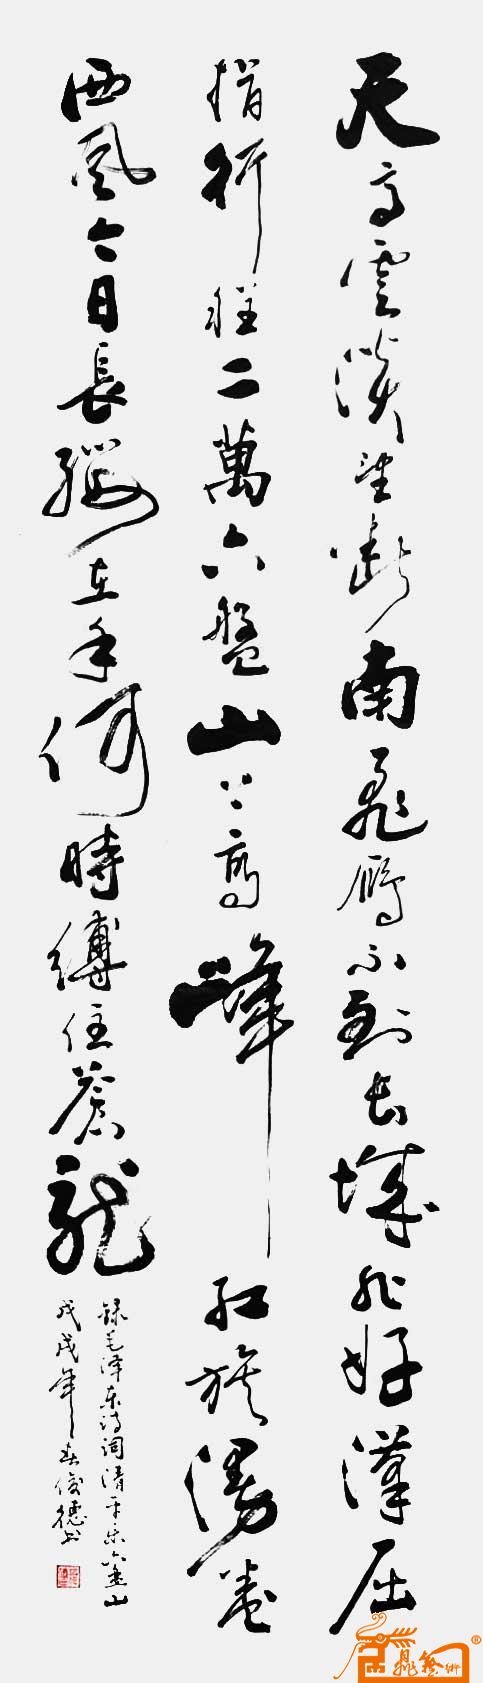 天高雲淡望断南飛雁不到長城非好漢屈
指行程二萬六盤山上高峰红旗漫卷
西風今日長纓在手何時縛住蒼龍
録毛泽东诗词清平乐六盘山
戊戌年春俊德书